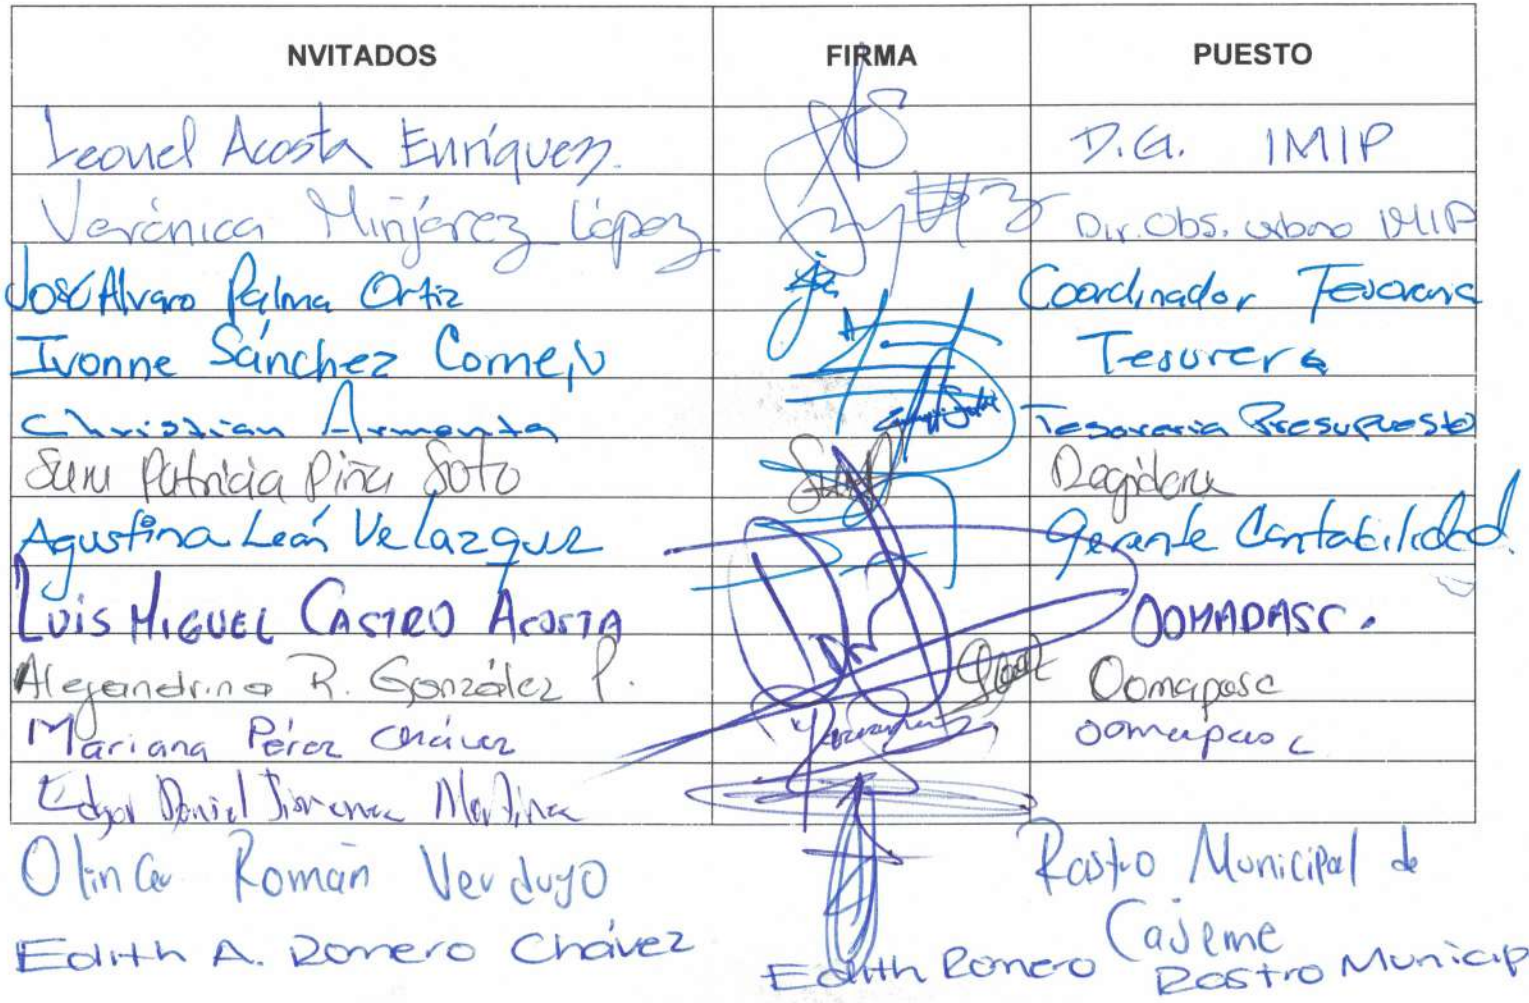 NVITADOS FIRMA PUESTO
Leonel Acosta Enríquez. D.G. IMIP
Verónica Miñjárez López Dir. Obs. urbano IMIP
José Alvaro Palma Ortiz Coordinador Tesoreria
Ivonne Sánchez Cornejo Tesorera
Christian Armenta Tesoreria Presupuesto
Patricia Piña Soto Regidora
Agustina León Velazquez Gerente Contabilidad.
LUIS MIGUEL CASTRO ACOSTA OOMAPASC.
Alejandrina R. González P. Oomapasc
Mariana Pérez Chávez Oomapasc
Edgar Daniel Jimenez Martinez
Olinca Román Verdugo Rastro Municipal de
Cajeme
Edith A. Romero Chávez Edith Romero Rastro Municip